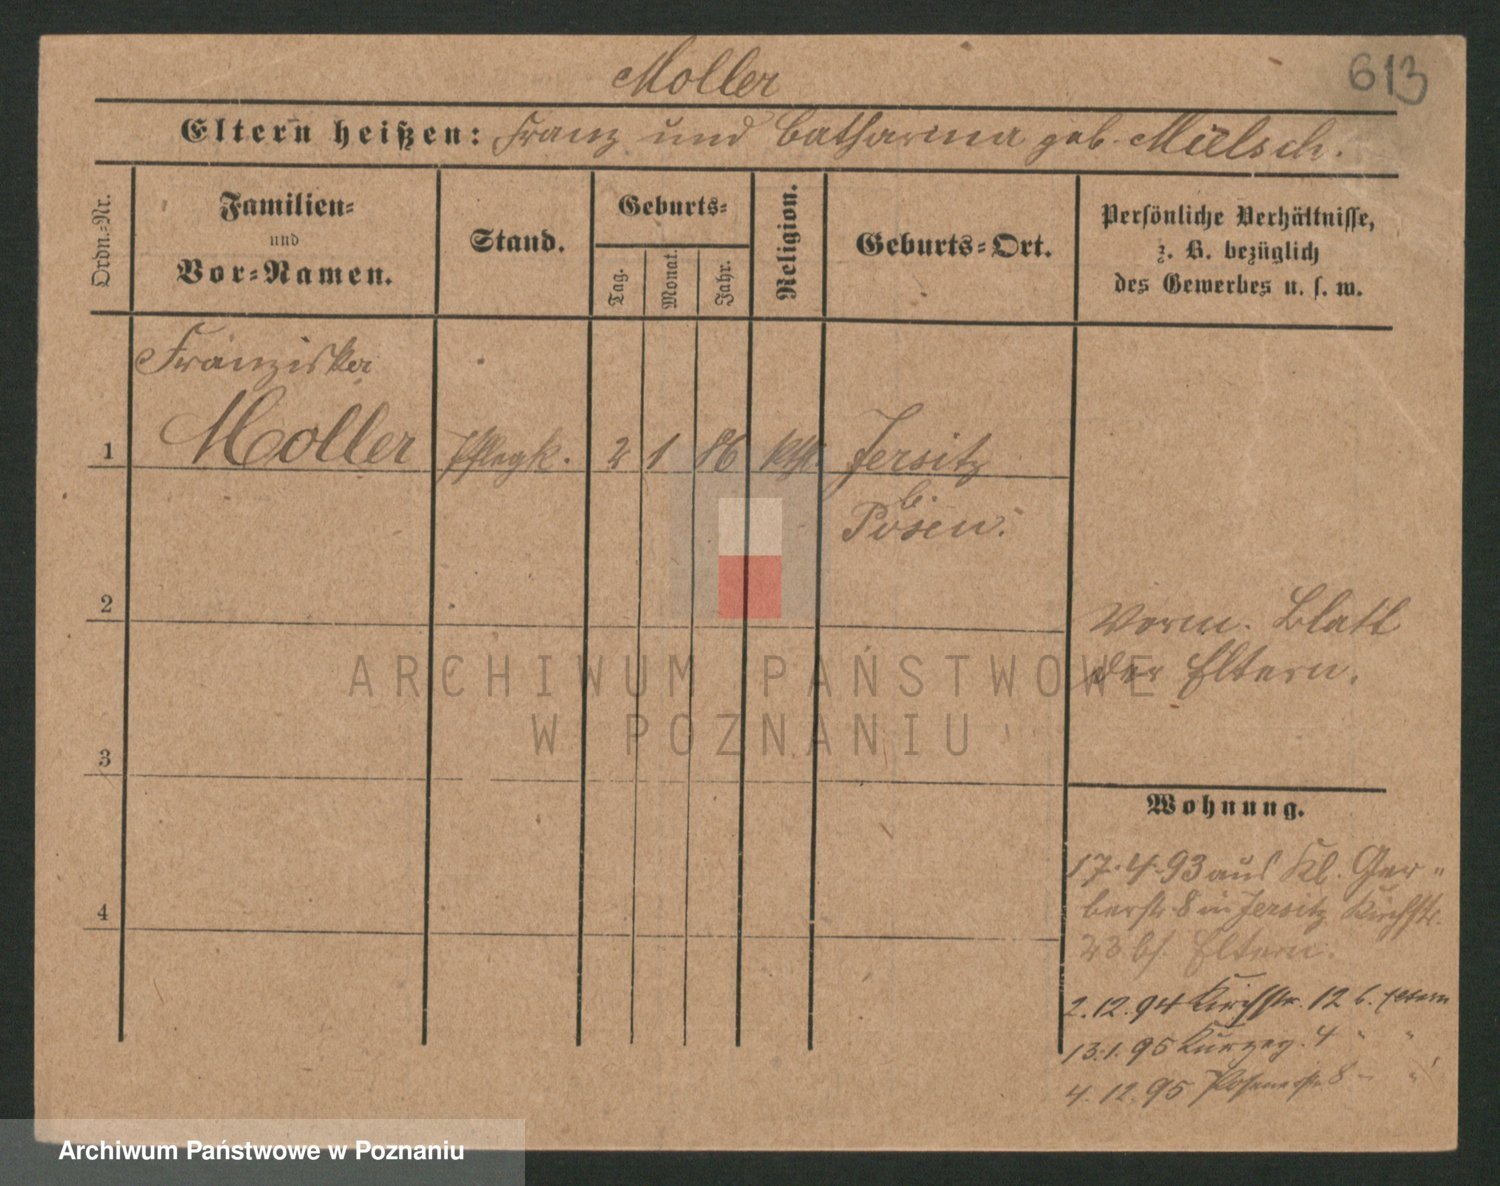 613
Moller
Eltern heißen: Franz und Catharina geb. Mülsch.
Ordn.-Nr.
Familien-
und
Vor-Namen.
Stand.
Geburts-
Tag.
Monat.
Jahr.
Religion.
Geburts-Ort.
Persönliche Verhältnisse,
z. B. bezüglich
des Gewerbes u. s. w.
Franziska
1 Moller Pflegk. 2 1 86 kth. Jersitz
b.
Posen.
2
Vorm. Blatt
der Eltern.
3
Wohnung.
17.4.93 aus Kl. Ger-
berstr. 8 in Jersitz Kirchstr.
23 bs. Eltern.
4
2.12.94 Kirchstr. 12 b. Eltern
13.1.95 4 " "
4.12.95 Posenerstr. 8 " "
ARCHIWUM PAŃSTWOWE
W POZNANIU
Archiwum Państwowe w Poznaniu